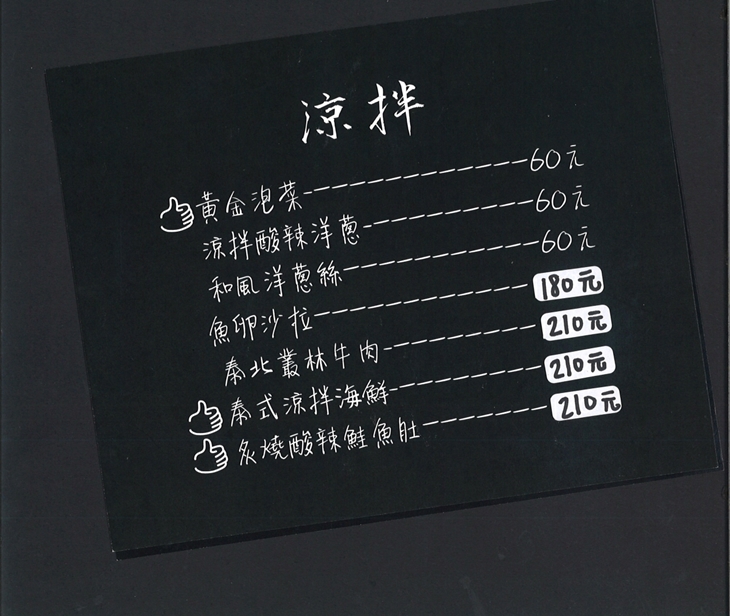 涼拌
黃金泡菜------------60元
涼拌酸辣洋蔥--------60元
和風洋蔥絲---------60元
魚卵沙拉----------180元
泰北叢林牛肉-------210元
泰式涼拌海鮮-------210元
炙燒酸辣鮭魚肚------210元